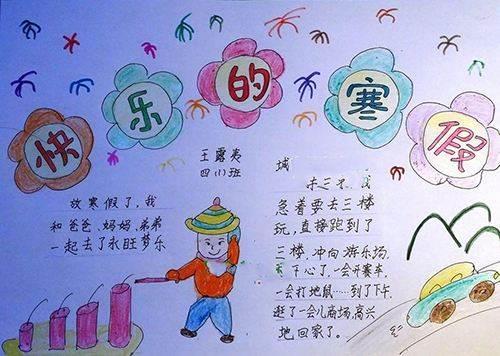 快乐的寒假
王露夷
四(1)班
放寒假了，我
和爸爸、妈妈、弟弟
一起去了永旺梦乐
城
急着要去三楼
玩，直接跑到了
三楼，冲向游乐场，
下心了，一会开赛车，
一会打地鼠……到了下午，
逛了一会儿商场，高兴
地回家了。